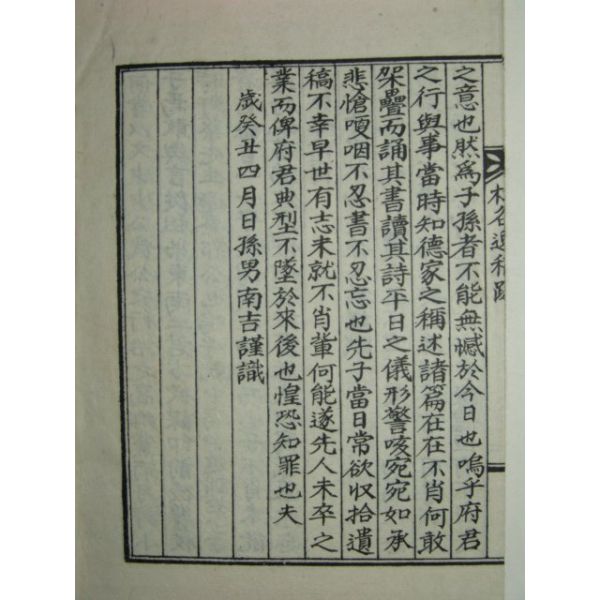 之意也然爲子孫者不能無憾於今日也嗚乎府君
之行與事當時知德家之稱述諸篇在在不肖何敢
架疊而誦其書讀其詩平日之儀形警咳宛宛如承
悲愴哽咽不忍書不忍忘也先子當日常欲収拾遺
稿不幸早世有志未就不肖輩何能遂先人未卒之
業而俾府君典型不墜於來後也惶恐知罪也夫
歲癸丑四月日孫男南吉謹識